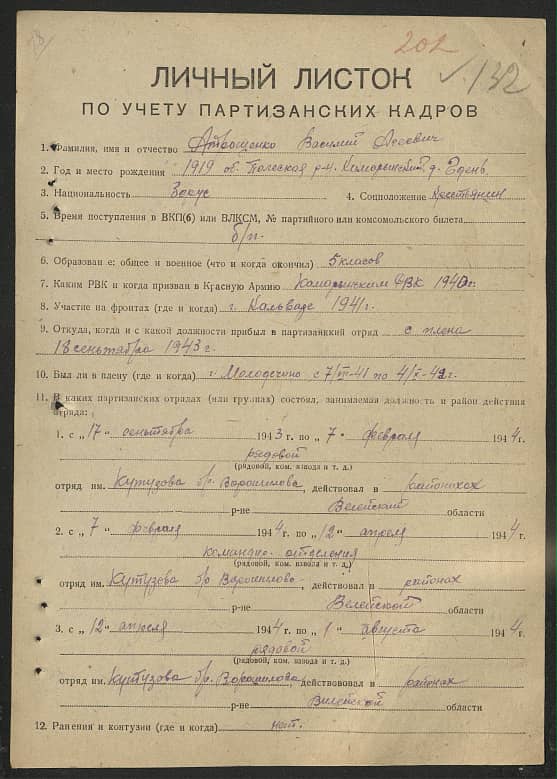 202
132
ЛИЧНЫЙ ЛИСТОК
ПО УЧЕТУ ПАРТИЗАНСКИХ КАДРОВ
1. Фамилия, имя и отчество Василий
2. Год и место рождения 1919 об. Полеская р-н. д.
3. Национальность 4. Соцположение Крестьянин
5. Время поступления в ВКП(б) или ВЛКСМ, № партийного или комсомольского билета
б/п.
6. Образование: общее и военное (что и когда окончил) 5 класов
7. Каким РВК и когда призван в Красную Армию РВК 1940г.
8. Участие на фронтах (где и когда) г. 1941г.
9. Откуда, когда и с какой должности прибыл в партизанкий отряд с плена
18 сеньтября 1943 г.
10. Был ли в плену (где и когда) г. Молодечино с 7/ -41 по 4/X-42г.
11. В каких партизанских отрядах (или группах) состоял, занимаемая должность и район действия
отряда:
1. с „17" сеньтября 1943 г. по „7" февраля 1944 г.
рядовой
(рядовой, ком. взвода и т. д.)
отряд им. Кутузова бр. Ворошилова, действовал в
р-не Велейской области
2. с „7" февраля 1944 г. по „12" апреля 1944 г.
отделения
(рядовой, ком. взвода и т. д.)
отряд им. Кутузова бр Ворошилова, действовал в районах
р-не Велейской области
3. с „12" апреля 1944 г. по „1" августа 1944 г.
рядовой
(рядовой, ком. взвода и т. д.)
отряд им. Кутузова бр. Ворошилова, действововал в районах
р-не Вилейской области
12. Ранения и контузии (где и когда) нет.